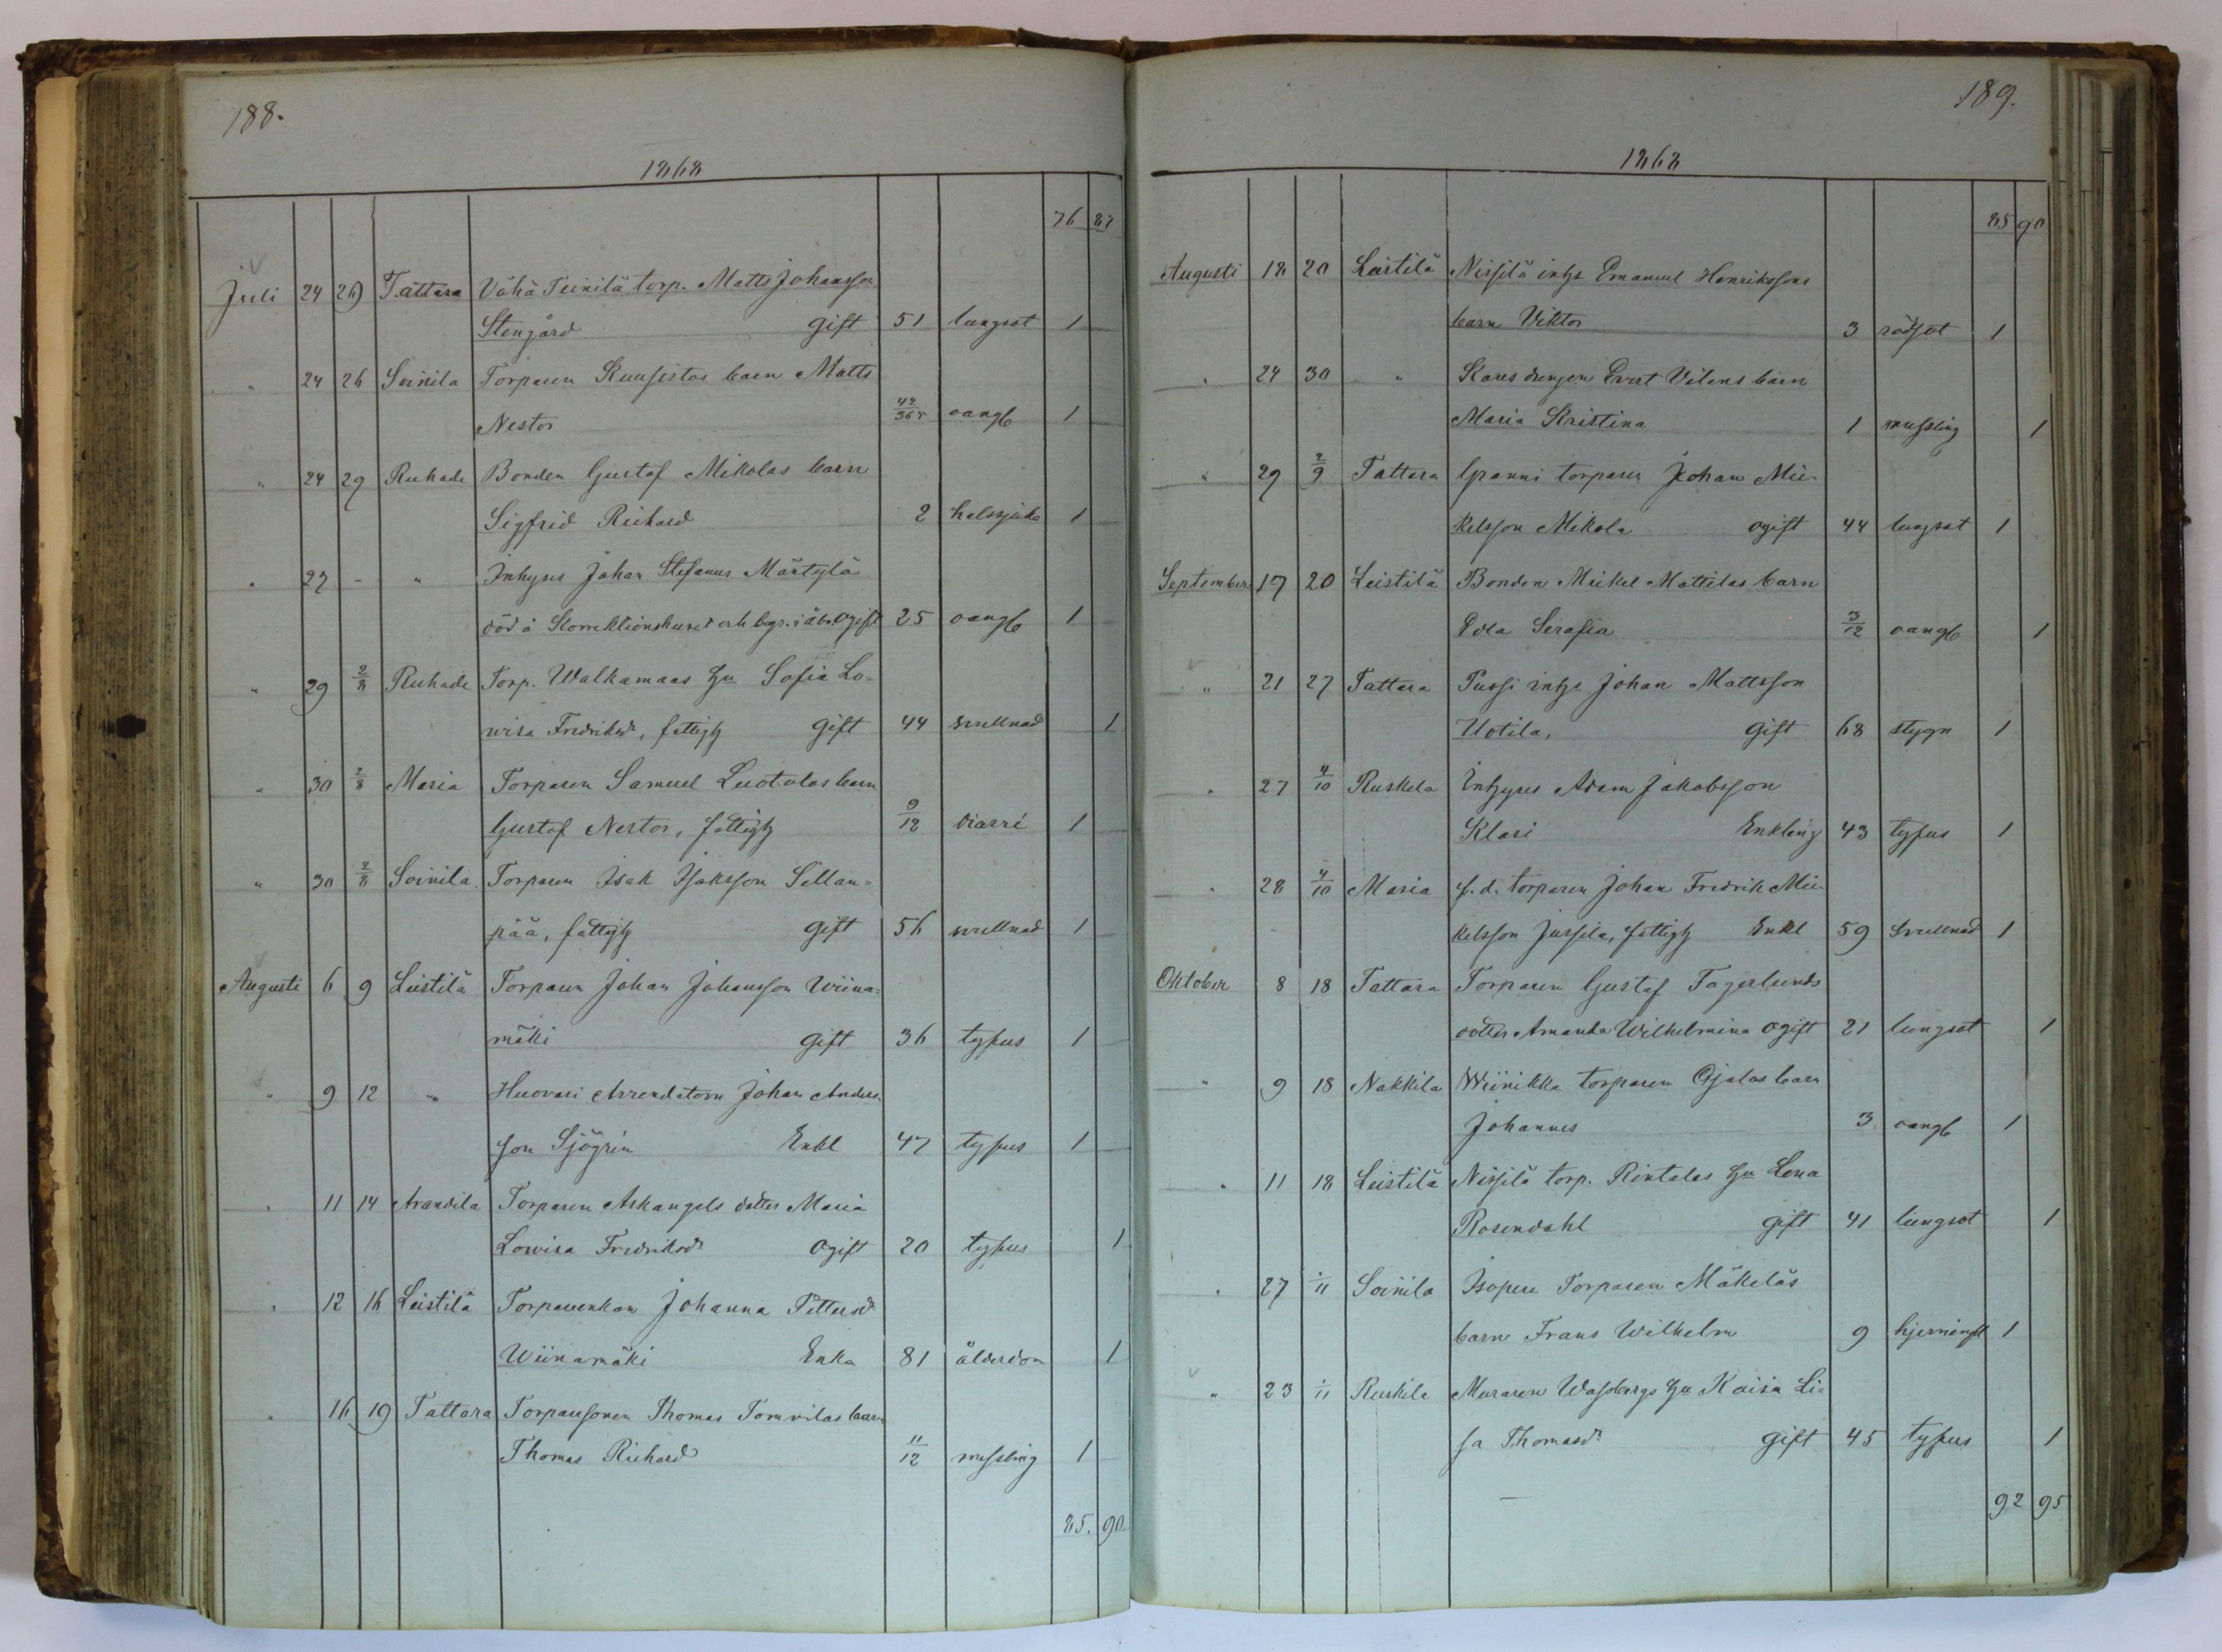 188.
1868
76 87
Juli 24 26 Tattara Vähä Teinilä torp. Matts Johansson
Stengård Gift 51 lungsot 1
" 24 26 Soinila Torparen Kuusistos barn Matts
Nestor 42/365 oangf 1
" 24 29 Ruhade Bonden Gustaf Mikolas barn
Sigfrid Richard 2 halssjuka 1
" 27 - " Inhyses Johan Stefanus Märtylä
död å Korrektionshuset och begr. i Åbo Ogift 25 oangf 1
" 29 2/8 Ruhade Torp. Walkamaas hu Sofia Lo=
wisa Fredriksdr, fattigh Gift 44 svullnad 1
" 30 2/8 Maria Torparen Samuel Luotolas barn
Gustaf Nestor, fattigh 9/12 diarré 1
" 30 2/8 Soinila Torparen Isak Isaksson Sillan=
pää, fattigh Gift 56 svullnad 1
Augusti 6 9 Leistilä Torparen Johan Johansson Wiina=
mäki Gift 36 tyfus 1
" 9 12 " Huovari Arrendatorn Johan Anders-
son Sjögrén Enkl 47 tyfus 1
" 11 14 Arandila Torparen Arkangels dotter Maria
Lowisa Fredriksdr Ogift 20 tyfus 1
" 12 16 Leistilä Torpareenkan Johanna Pettersd
Wiinamäki Enka 81 ålderdom 1
" 16 19 Tattara Torparesonen Thomas Tomvilas barn
Thomas Richard 11/12 messling 1
85. 90
189.
1868
85 90
Augusti 18 20 Leistilä Nissilä inhs Emanuel Henrikssons
barn Viktor 3 rödsot 1
" 24 30 " Kares drengen Evert Viléns barn
Maria Kristina 1 messling 1
" 29 2/9 Tattara Spanni torparen Johan Mi-
kelsson Mikola ogift 44 lungsot 1
September 17 20 Leistilä Bonden Mickel Mattilas barn
Eva Serafia 3/12 oangf 1
" 21 27 Tattara Pussi inhs Johan Mattsson
Uotila, Gift 68 stygn 1
" 27 4/10 Ruskela Inhyses Adam Jakobsson
Klasi Enkling 43 tyfus 1
" 28 4/10 Maria f.d. torparen Johan Fredrik Mi-
kelsson Jussila, fattigh Enkl 59 Svullnad 1
Oktober 8 18 Tattara Torparen Gustaf Fagerlunds
dotter Amanda Wilhelmina ogift 21 lungsot 1
" 9 18 Nakkila Wiinikka torparen Ojalas barn
Johannes 3 oangf 1
" 11 18 Leistilä Nissilä torp. Rintalas hu Lena
Rosendahl Gift 41 lungsot 1
" 27 1/11 Soinila Isopere Torparen Mäkeläs
barn Frans Wilhelm 9 hjerninfl 1
" 23 1/11 Ruskila Muraren Wassbergs hu Kaisa Li=
sa Thomasdr Gift 45 tyfus 1
92 95